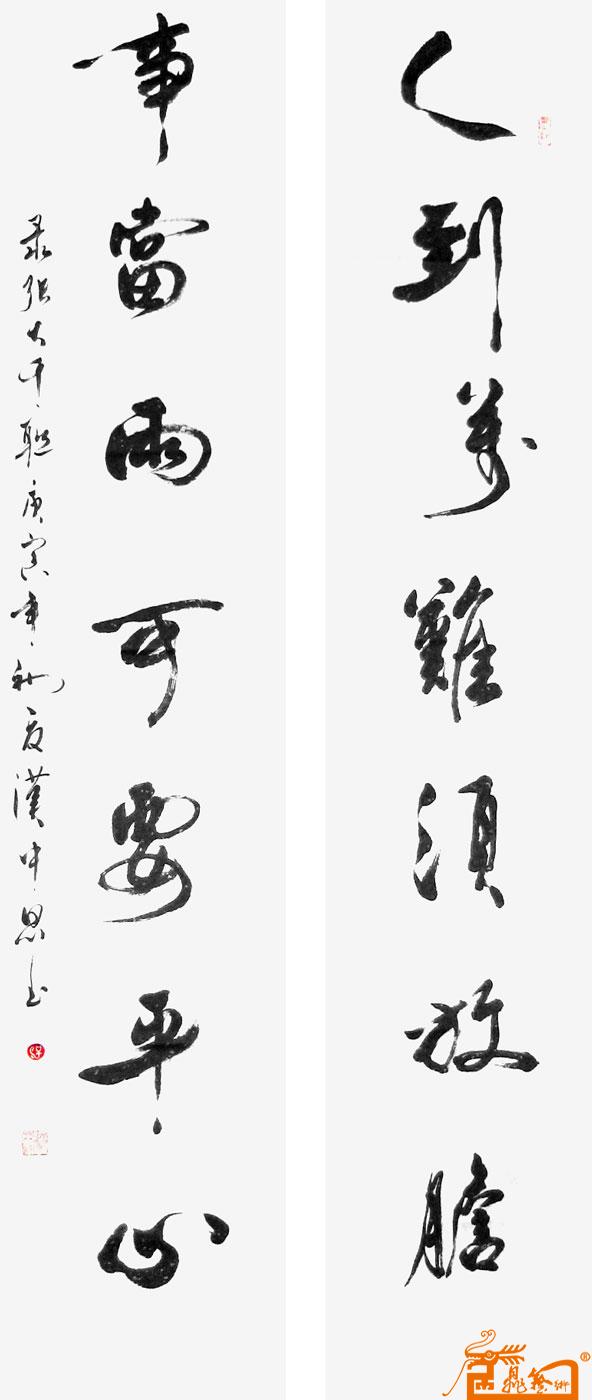 人到萬難須放膽
事當兩可要平心
录張大千聯庚寅年秋夏漢中思玉